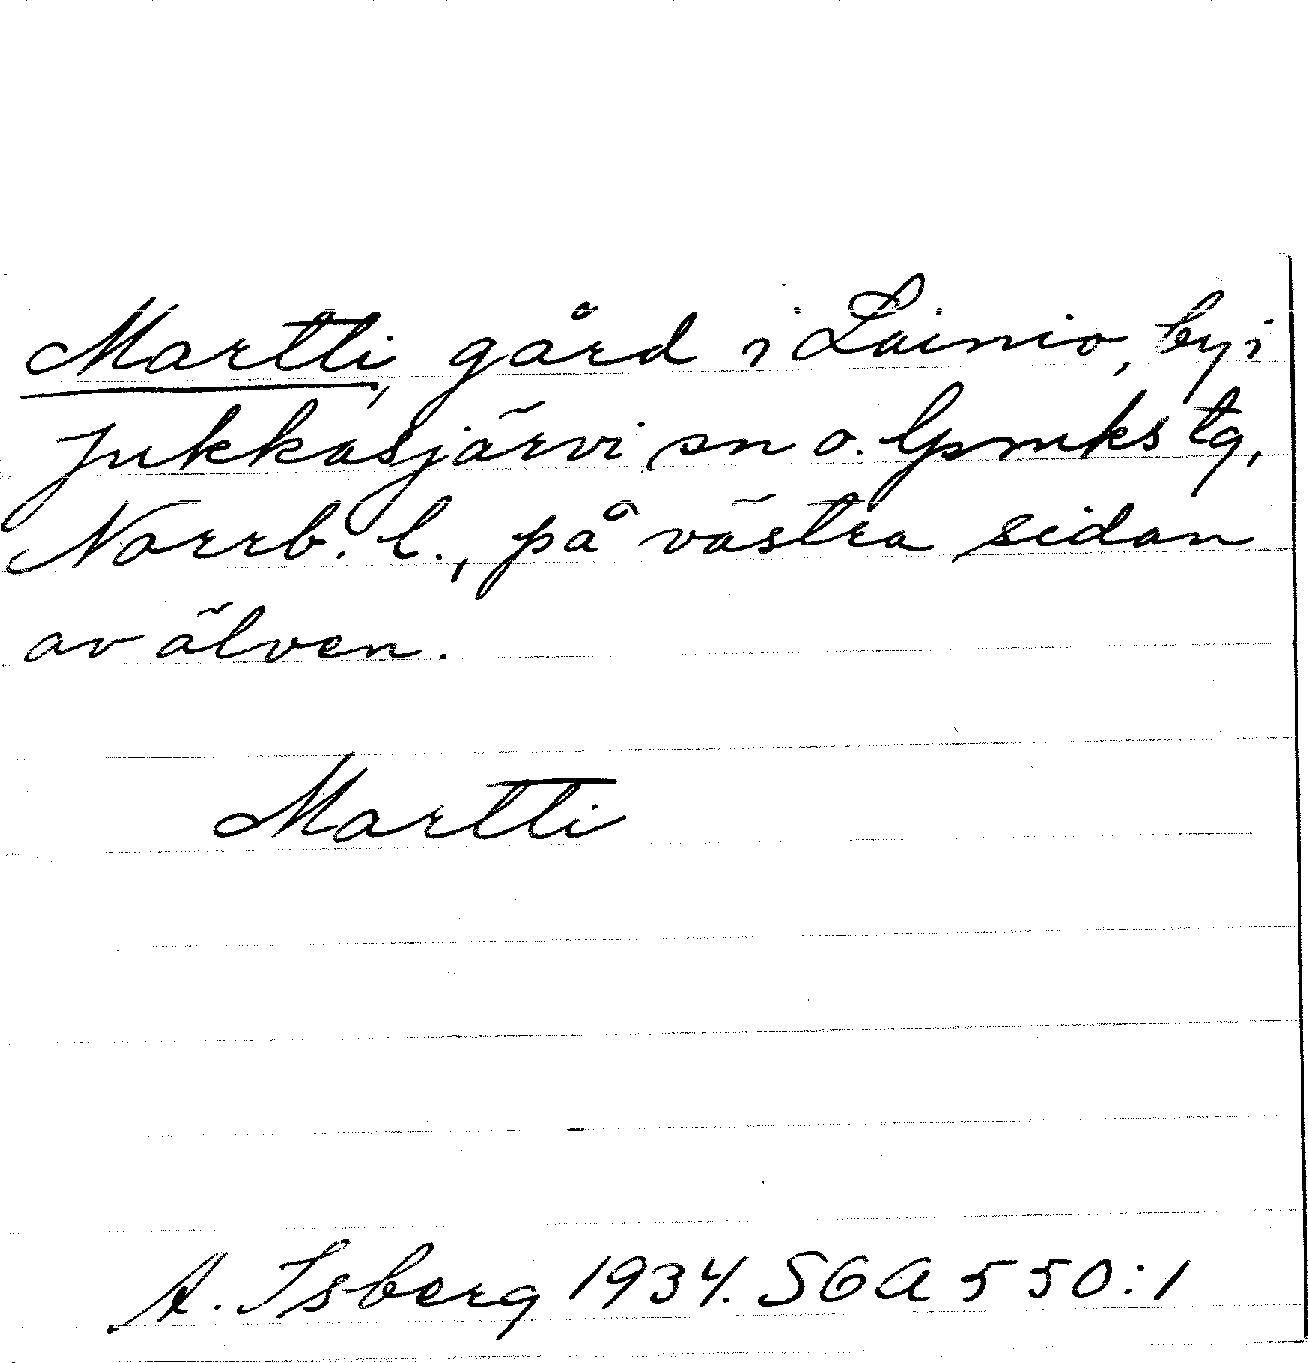 Martti, gård i Lainio, by i
Jukkasjärvi sn o. lpmks tg,
Norrb. l., på västra sidan
av älven.
Martti
A. Isberg 1934. SGA 550:1